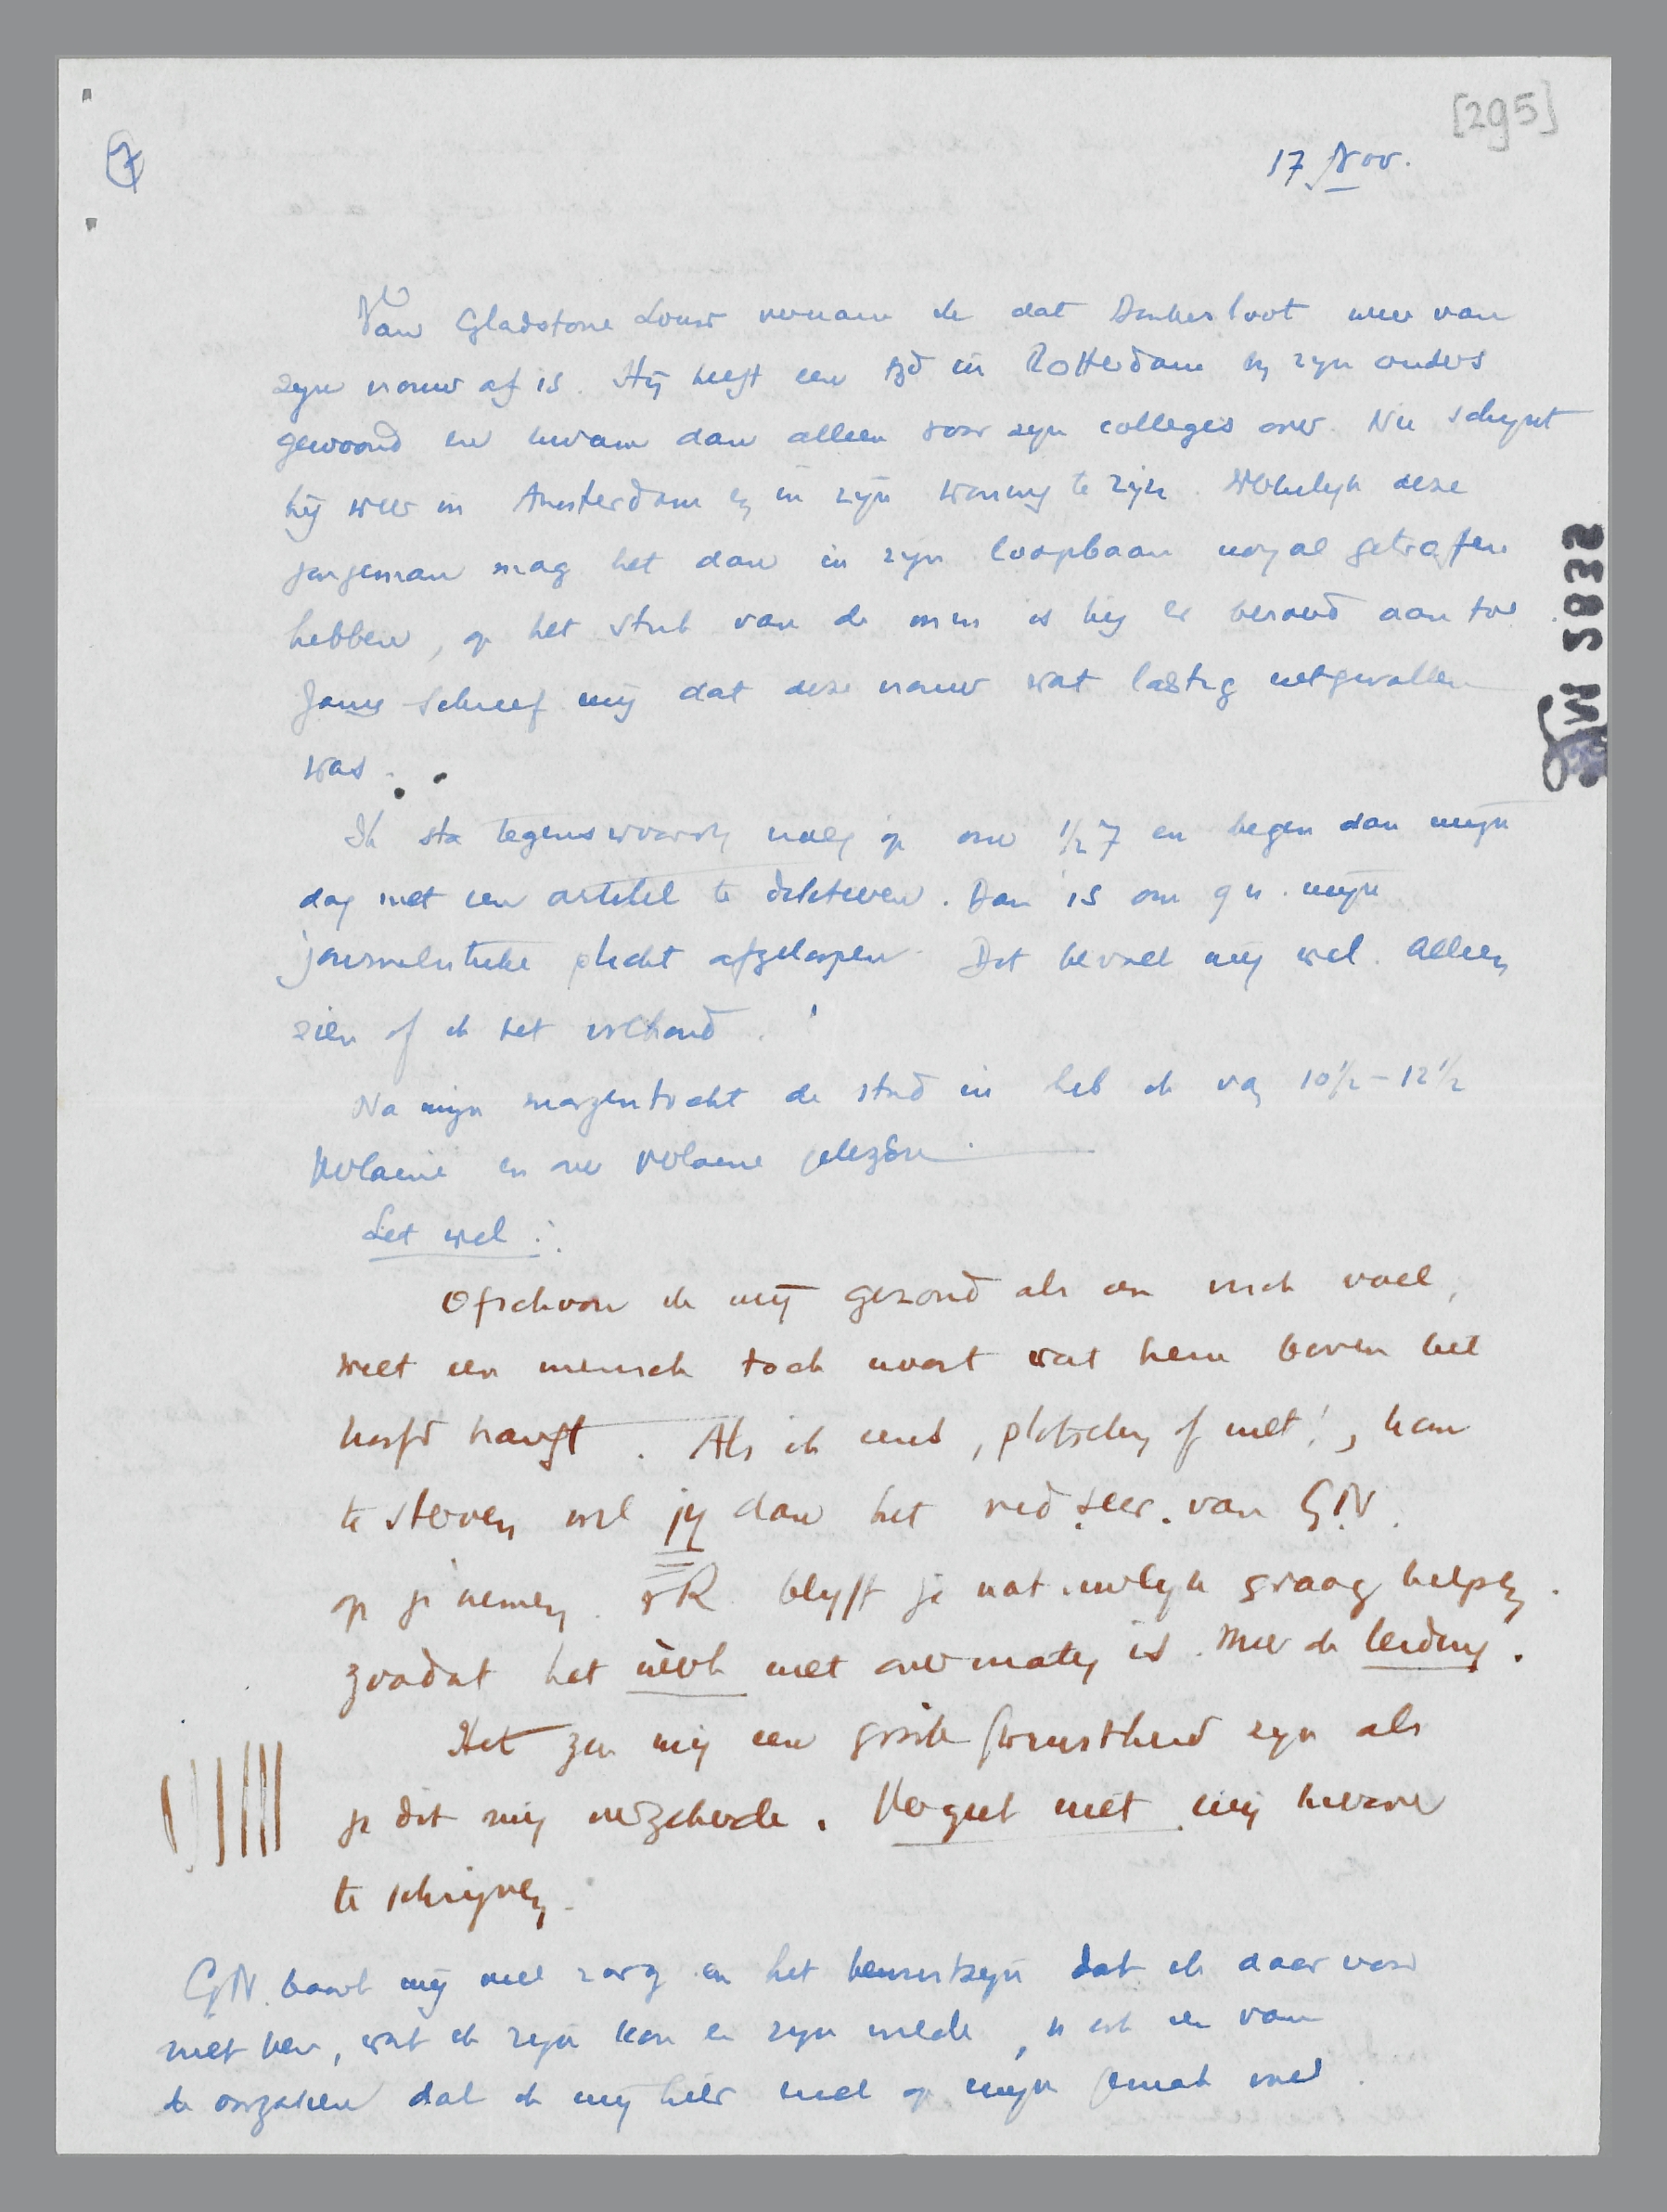 [295]
7
17 Nov.
Van Gladstone Louw vernam ik dat Donkersloot weer van
zijn vrouw af is. Hij heeft een tijd in Rotterdam bij zijn ouders
gewoond en kwam dan alleen voor zijn colleges over. Nu schijnt
hij weer in Amsterdam en in zijn woning te zijn. Werkelijk deze
jongeman mag het dan in zijn loopbaan nogal getroffen
hebben, op het stuk van de min is hij er beroerd aan toe.
Jany schreef mij dat deze vrouw wat lastig uitgevallen
was.
Ik sta tegenwoordig vroeg op om ½7 en begin dan mijn
dag met een artikel te dicteeren. Dan is om 9 u. mijn
journalistieke plicht afgeloopen. Dit bevalt mij wel. Alleen
zien of ik het volhoud.
Na mijn morgentocht de stad in heb ik van 10½ - 12½
Verlaine en over Verlaine gelezen.
Let wel :
Ofschoon ik mij gezond als een visch voel,
weet een mensch toch nooit wat hem boven het
hoofd hangt. Als ik eens, plotseling of niet!, kom
te sterven wil jij dan het red. seer. van G.N.
op je nemen. v R. blijft je natuurlijk graag helpen
zoodat het werk niet overmatig is. Meer de leiding.
Het zou mij een groote gerustheid zijn als
je dit mij verzekerde. Vergeet niet mij hierover
te schrijven.
G.N. baart mij veel zorg en het bewustzijn dat ik daar voor
niet ben, wat ik zijn kon en zijn wilde, is ook een van
de oorzaken dat ik mij hier niet op mijn gemak voel.
S 8035 M